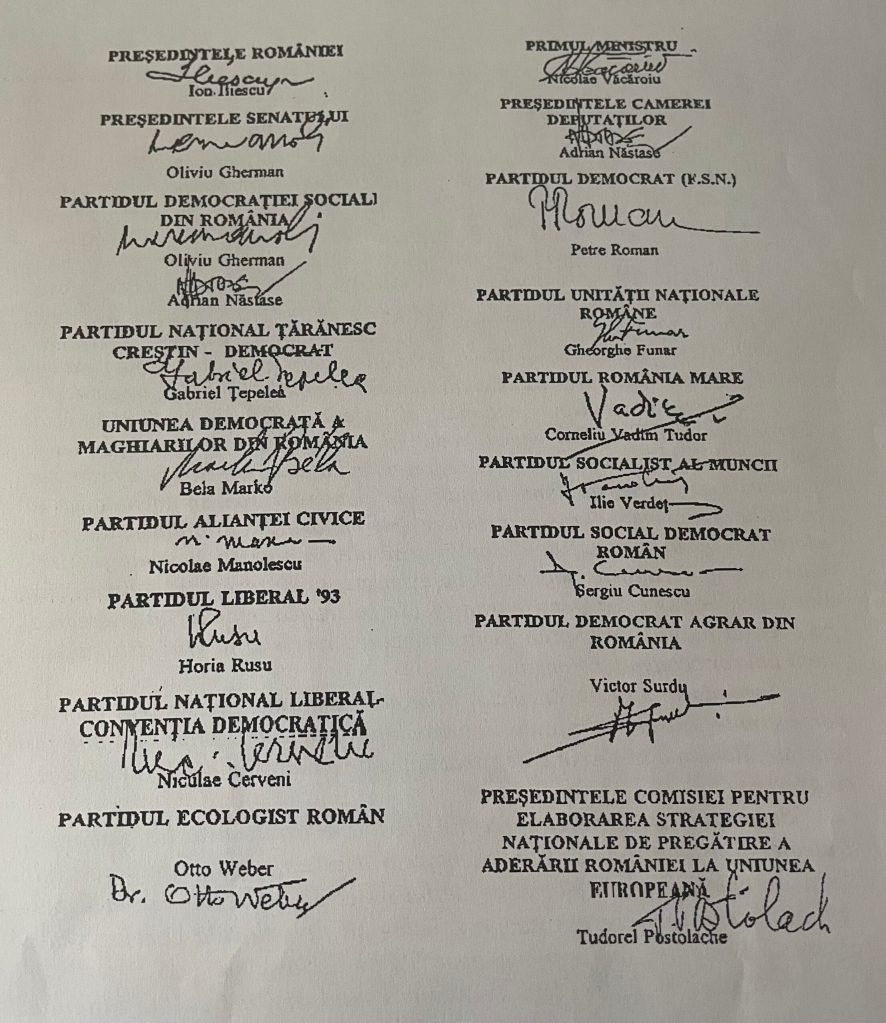 PREŞEDINTELE ROMÂNIEI
Iliescu
Ion Iliescu
PREŞEDINTELE SENATULUI
Oliviu Gherman
PARTIDUL DEMOCRAŢIEI SOCIALE
DIN ROMÂNIA
Oliviu Gherman
Adrian Năstase
PARTIDUL NAŢIONAL ŢĂRĂNESC
CREŞTIN - DEMOCRAT
Gabriel Ţepelea
Gabriel Ţepelea
UNIUNEA DEMOCRATĂ A
MAGHIARILOR DIN ROMÂNIA
Marko Bela
Bela Marko
PARTIDUL ALIANŢEI CIVICE
Nicolae Manolescu
PARTIDUL LIBERAL '93
HRusu
Horia Rusu
PARTIDUL NAŢIONAL LIBERAL-
CONVENŢIA DEMOCRATICĂ
Niculae Cerveni
PARTIDUL ECOLOGIST ROMÂN
Otto Weber
Dr. Otto Weber
PRIMUL MINISTRU
Nicolae Văcăroiu
PREŞEDINTELE CAMEREI
DEPUTAŢILOR
Adrian Năstase
PARTIDUL DEMOCRAT (F.S.N.)
PRoman
Petre Roman
PARTIDUL UNITĂŢII NAŢIONALE
ROMÂNE
Gheorghe Funar
PARTIDUL ROMÂNIA MARE
Corneliu Vadim Tudor
PARTIDUL SOCIALIST AL MUNCII
Ilie Verdeţ
PARTIDUL SOCIAL DEMOCRAT
ROMÂN
Sergiu Cunescu
PARTIDUL DEMOCRAT AGRAR DIN
ROMÂNIA
Victor Surdu
PREŞEDINTELE COMISIEI PENTRU
ELABORAREA STRATEGIEI
NAŢIONALE DE PREGĂTIRE A
ADERĂRII ROMÂNIEI LA UNIUNEA
EUROPEANĂ
Tudorel Postolache